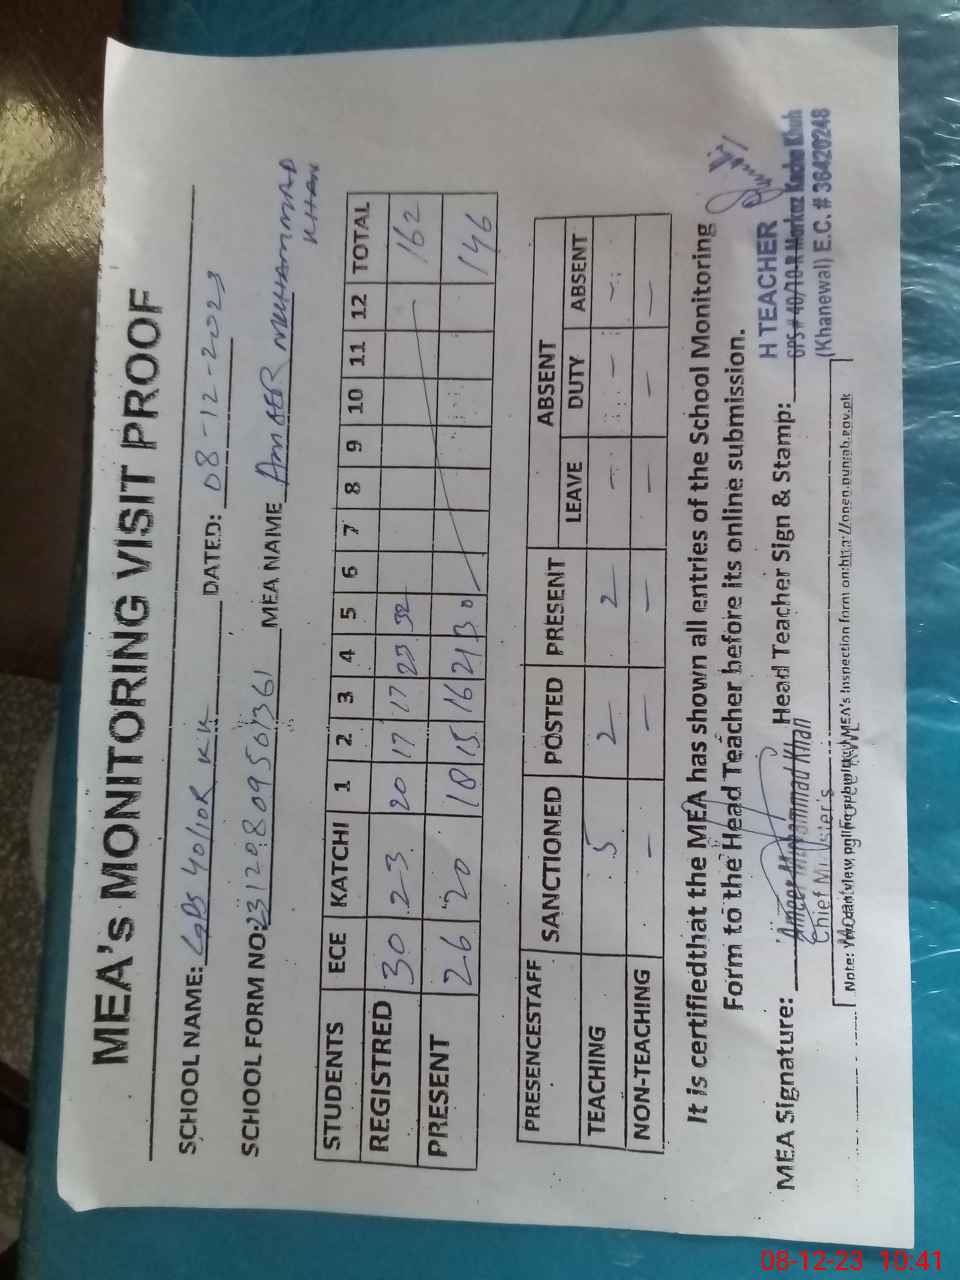 MEA's MONITORING VISIT PROOF
SCHOOL NAME: GGPS 40/10R KK DATED: 08-12-2023
SCHOOL FORM NO: 23120809950361 MEA NAME AMEER MUHAMMAD KHAN
STUDENTS ECE KATCHI 1 2 3 4 5 6 7 8 9 10 11 12 TOTAL
REGISTRED 30 23 20 17 17 23 32 162
PRESENT 26 20 18 15 16 21 30 146
PRESENCESTAFF SANCTIONED POSTED PRESENT ABSENT
LEAVE DUTY ABSENT
TEACHING 5 2 2 - - -
NON-TEACHING - - - - - -
It is certifiedthat the MEA has shown all entries of the School Monitoring
Form to the Head Teacher before its online submission.
MEA Signature: Head Teacher Sign & Stamp:
Ameer Muhammad Khan
Chief
H TEACHER
GPS # 40/10-R Markaz Kacha Khuh
(Khanewal) E.C. # 36420248
Note: MEA's Inspection form on:http://open.punjab.gov.pk
08-12-23 10:41